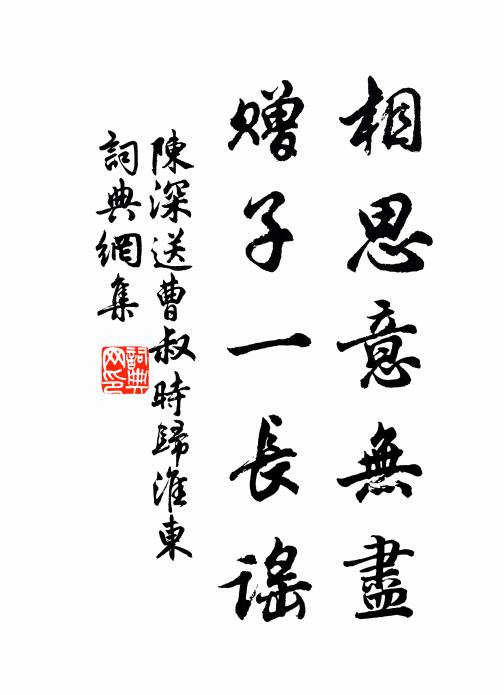 相思意無盡
贈子一長謠
陳深送曹叔時歸淮東
詞典網集
詞典网印